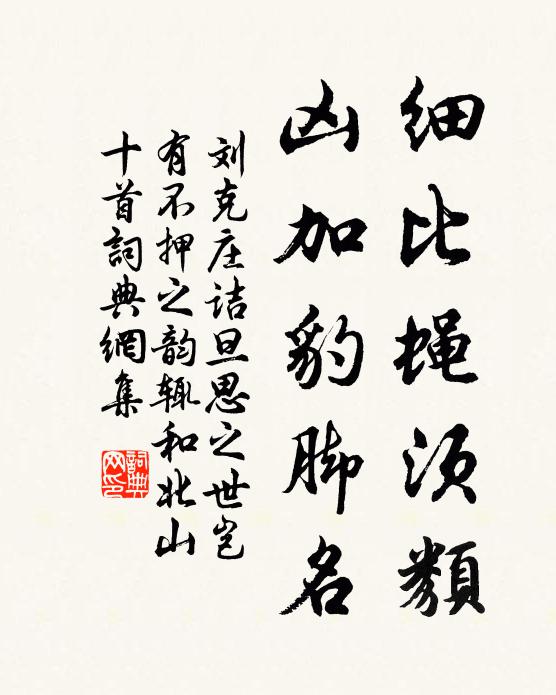 细比蝇须类
凶加豹脚名
刘克庄诘旦思之世岂
有不押之韵辄和北山
十首詞典網集
詞典网印